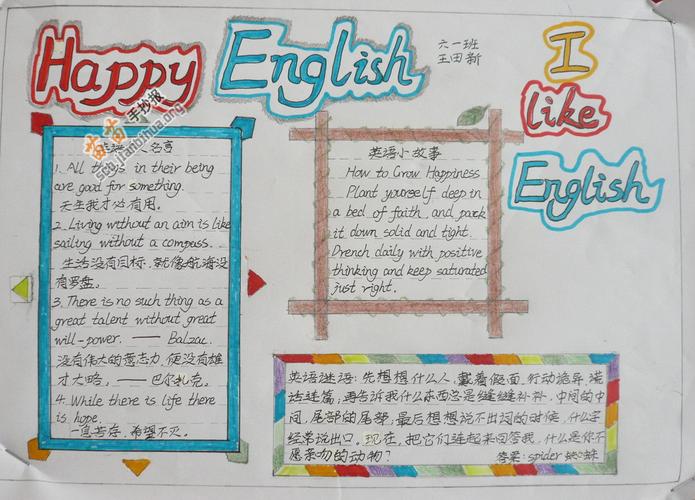 Happy English
六一班
王田新
I
like
English
苗苗手抄报
scb.jianbihua.org
1. All things in their being
are good for something.
天生我才必有用。
2. Living without an aim is like
sailing without a compass.
生活没有目标，就像航海没
有罗盘。
3. There is no such thing as a
great talent without great
will-power. —— Balzac.
没有伟大的意志力，便没有雄
才大略。——巴尔扎克。
4. While there is life there
is hope.
一息若存，希望不灭。
英语小故事
How to Grow Happiness
Plant yourself deep in
a bed of faith, and pack
it down solid and tight.
Drench daily with positive
thinking and keep saturated
just right.
英语谜语：先想想什么人，戴着假面，行动诡异，谎
话连篇，再告诉我什么东西总是缝缝补补，中间的中
间，尾部的尾部，最后想想说不出词的时候，什么字
经常说出口。现在，把它们连起来回答我，什么是你不
愿亲吻的动物？ 答案：spider